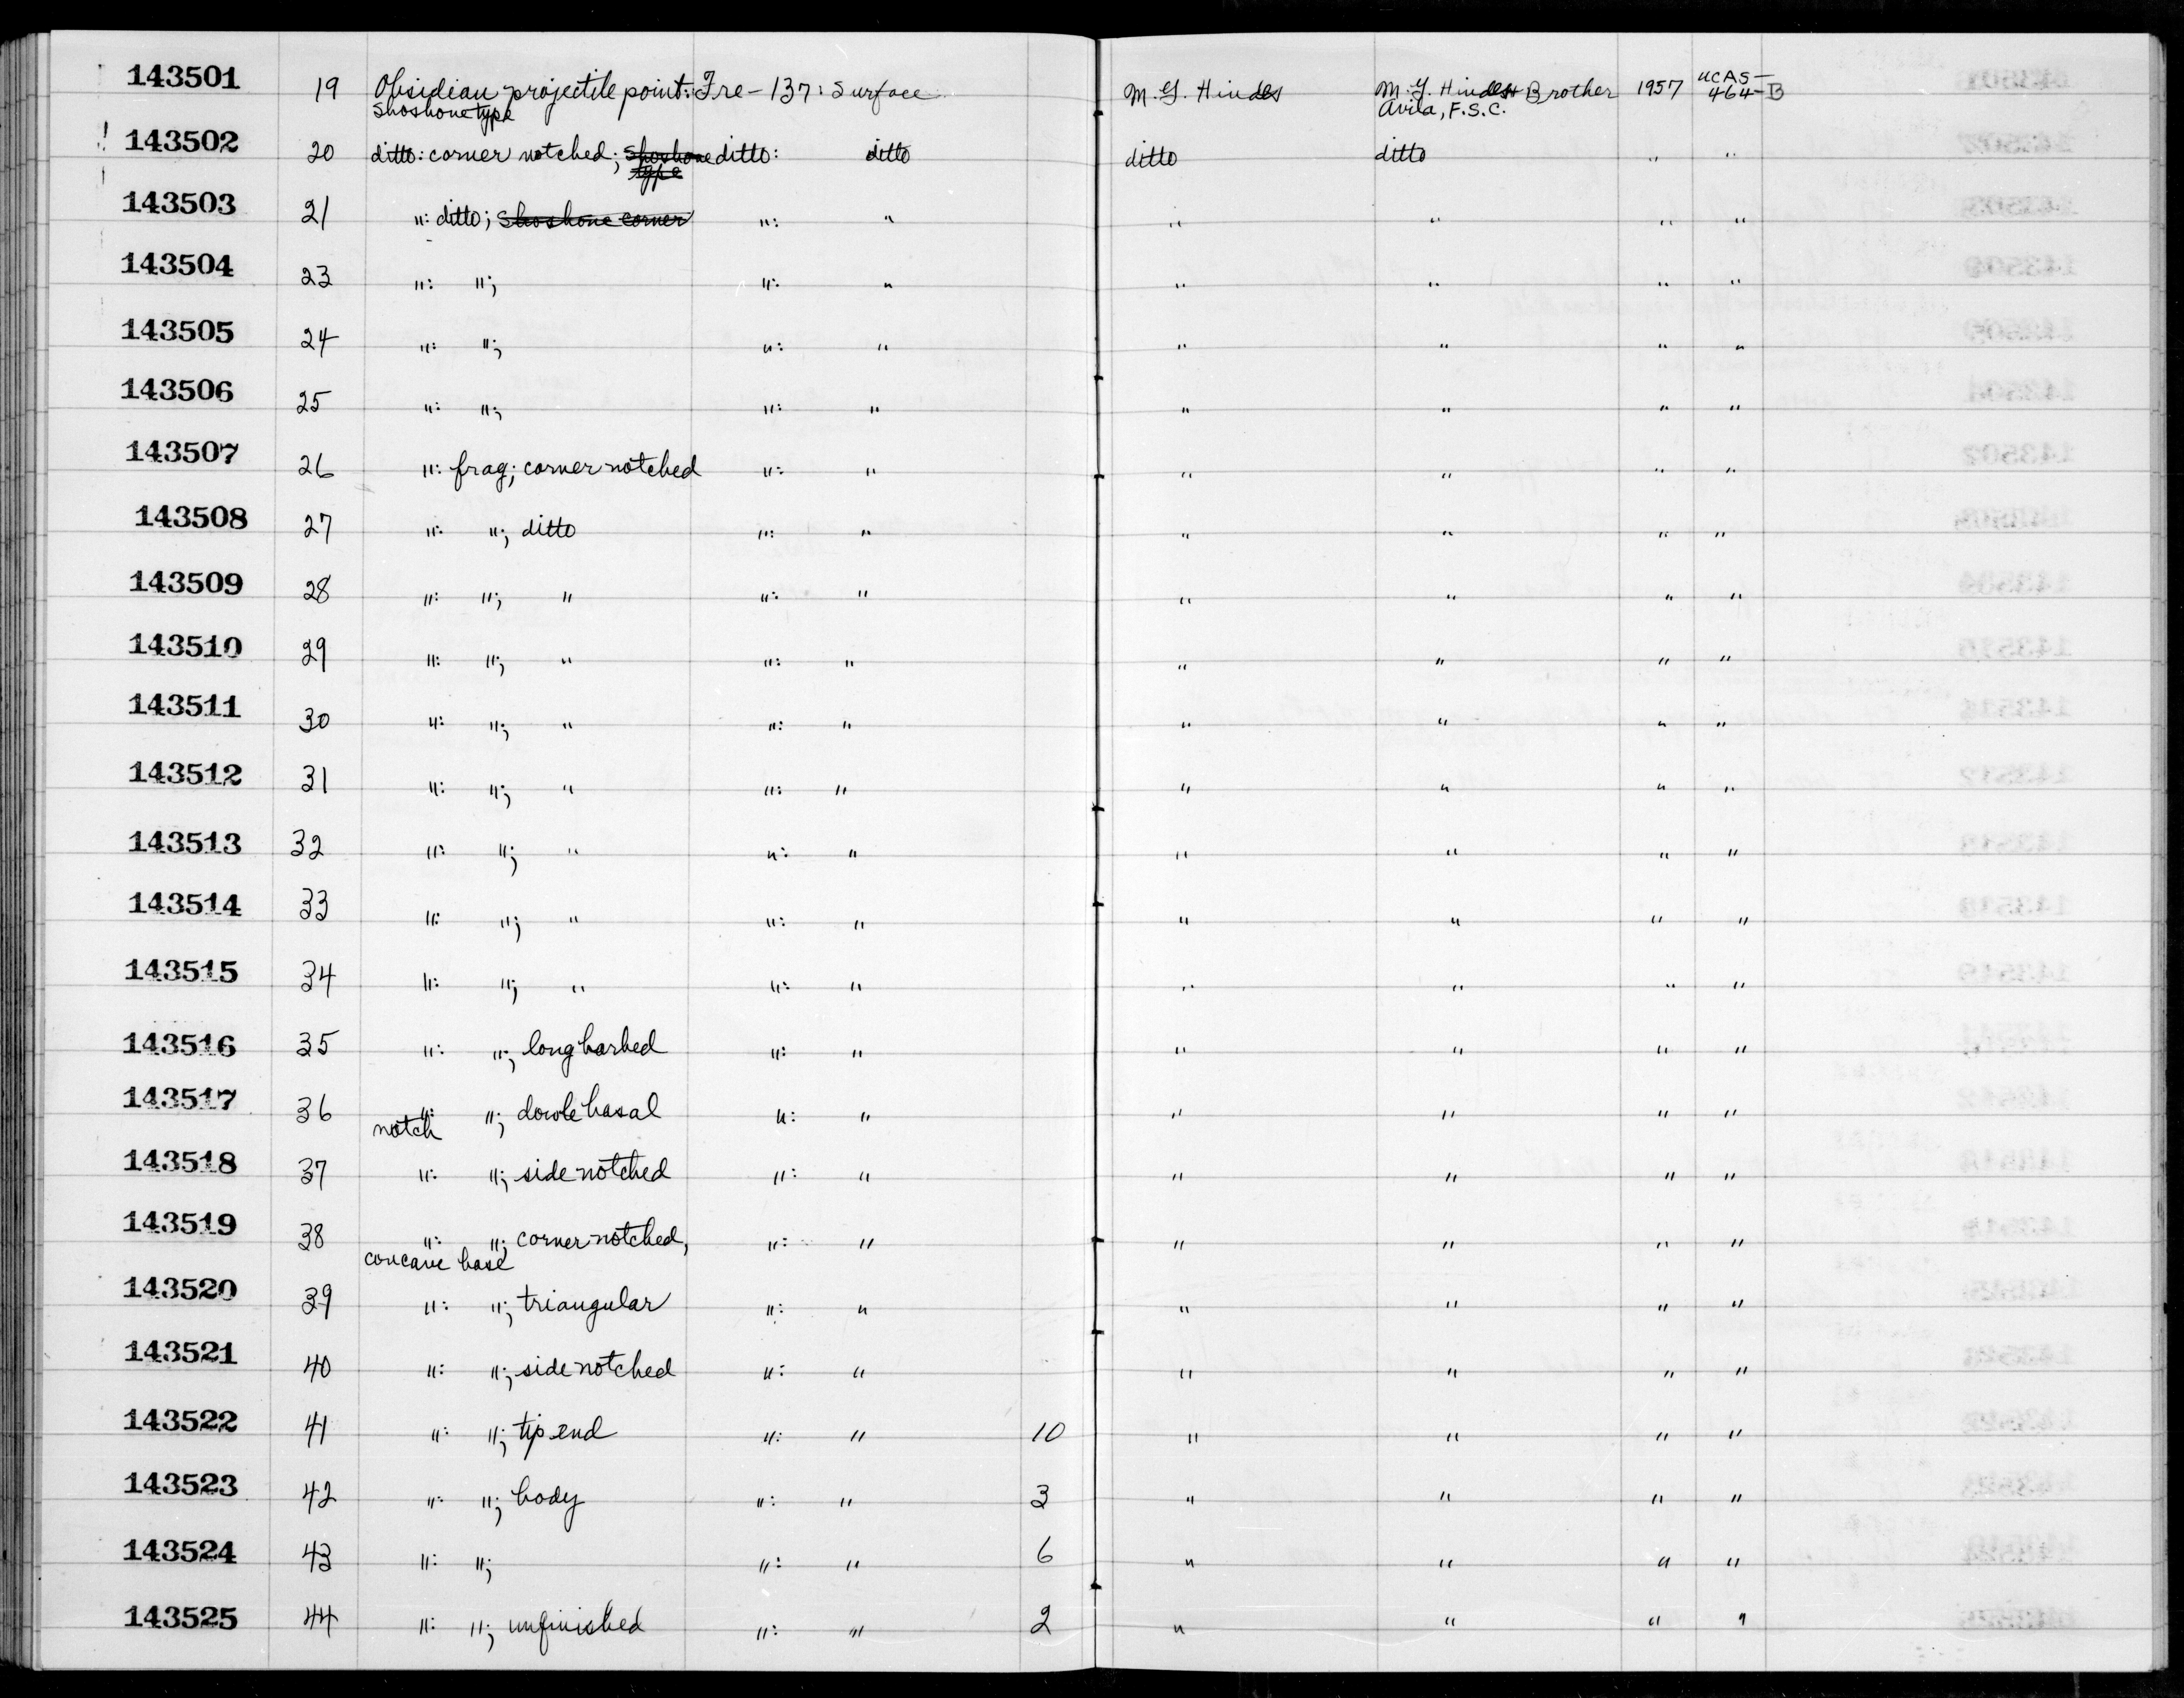 143501 19 Obsidian projectile point: Fre-137: Surface M.G. Hindes M.G. Hindes & Brother 1957 UCAS-
Shoshone type Avila, F.S.C. 464-B
143502 20 ditto: corner notched; Shoshone ditto: ditto ditto ditto " "
type
143503 21 ": ditto; Shoshone corner ": " " " " "
143504 23 ": "; ": " " " " "
143505 24 ": "; ": " " " " "
143506 25 ": "; ": " " " " "
143507 26 ": frag; corner notched ": " " " " "
143508 27 ": "; ditto ": " " " " "
143509 28 ": "; " ": " " " " "
143510 29 ": "; " ": " " " " "
143511 30 ": "; " ": " " " " "
143512 31 ": "; " ": " " " " "
143513 32 ": "; " ": " " " " "
143514 33 ": "; " ": " " " " "
143515 34 ": "; " ": " " " " "
143516 35 ": "; long barbed ": " " " " "
143517 36 ": "; basal ": " " " " "
notch
143518 37 ": "; side notched ": " " " " "
143519 38 ": "; corner notched, ": " " " " "
concave base
143520 39 ": "; triangular ": " " " " "
143521 40 ": "; side notched ": " " " " "
143522 41 ": "; tip end ": " 10 " " " "
143523 42 ": "; body ": " 3 " " " "
143524 43 ": "; ": " 6 " " " "
143525 44 ": "; unfinished ": " 2 " " " "